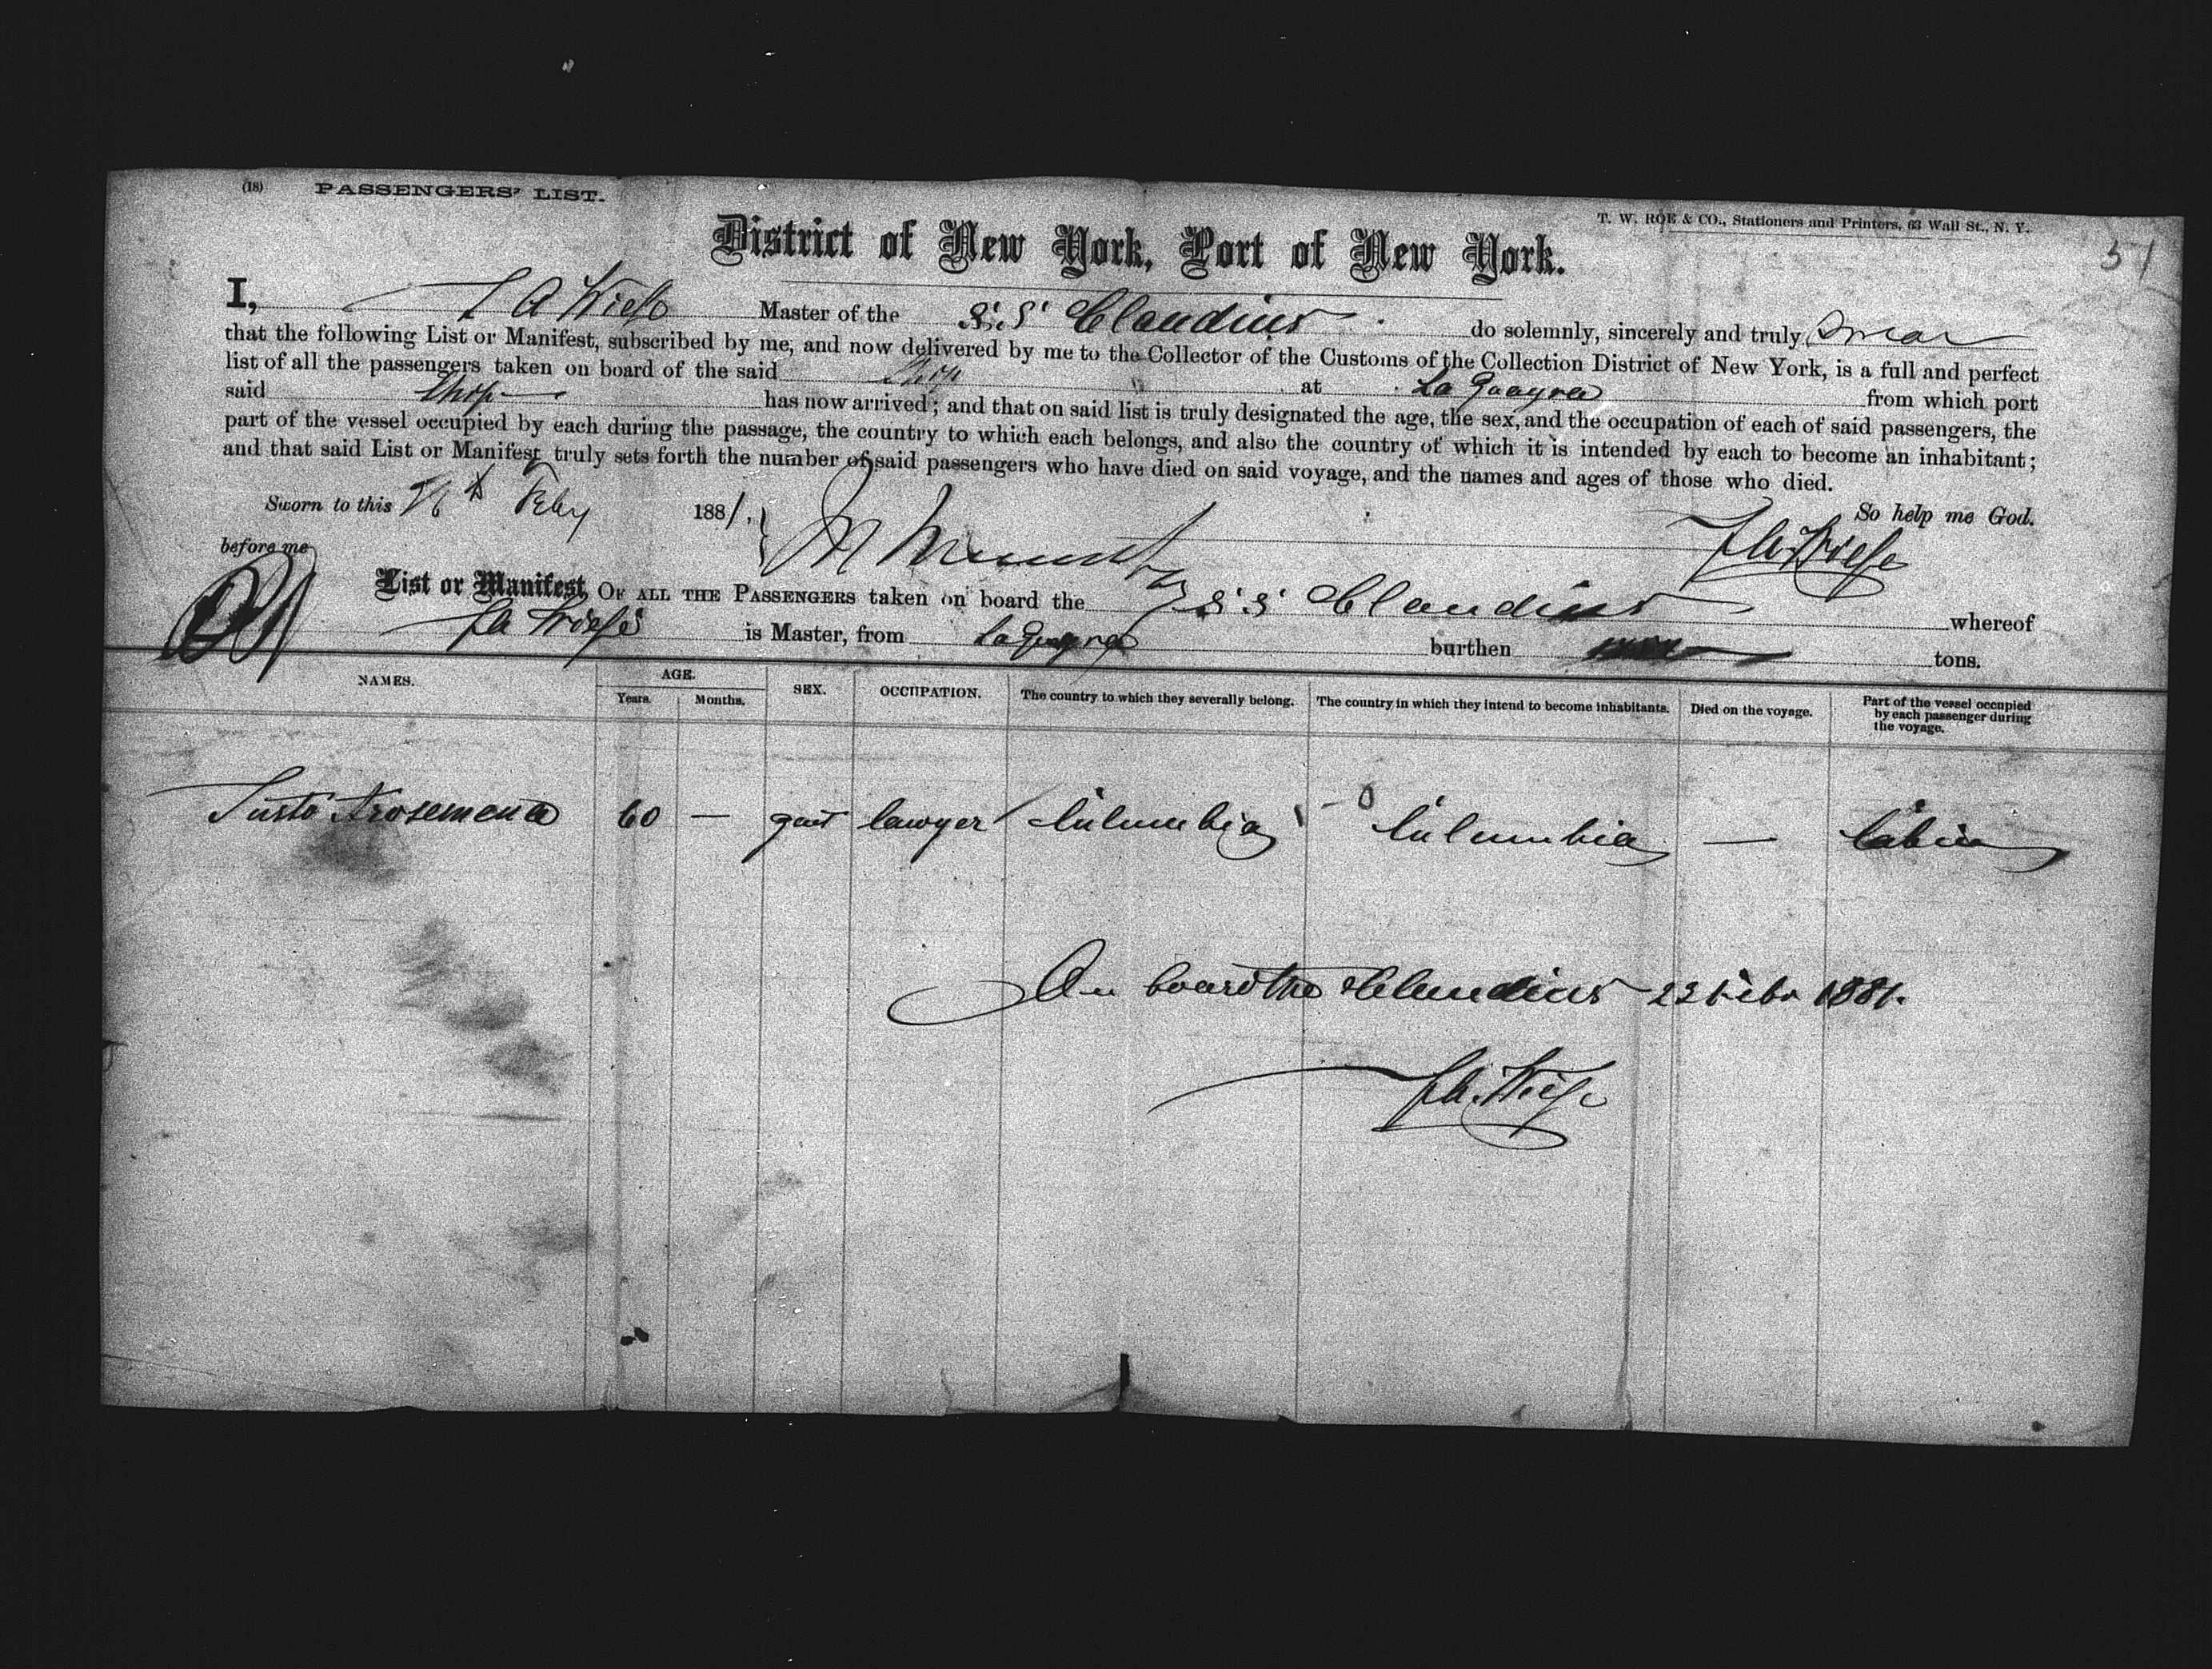 (18) PASSENGERS' LIST.
T. W. ROE & CO., Stationers and Printers, 63 Wall St., N. Y.
51
District of New York, Port of New York.
I, Master of the S.S. Claudius do solemnly, sincerely and truly swear
that the following List or Manifest, subscribed by me, and now delivered by me to the Collector of the Customs of the Collection District of New York, is a full and perfect
list of all the passengers taken on board of the said Ship at La Guayra from which port
said Ship has now arrived; and that on said list is truly designated the age, the sex, and the occupation of each of said passengers, the
part of the vessel occupied by each during the passage, the country to which each belongs, and also the country of which it is intended by each to become an inhabitant;
and that said List or Manifest truly sets forth the number of said passengers who have died on said voyage, and the names and ages of those who died.
So help me God.
Sworn to this Feby 1881.
before me
List or Manifest, OF ALL THE PASSENGERS taken on board the S S Claudius whereof
is Master, from La Guayra burthen tons.
NAMES. AGE. SEX. OCCUPATION. The country to which they severally belong. The country in which they intend to become inhabitants. Died on the voyage. Part of the vessel occupied by each passenger during the voyage.
Years. Months.
Justo Arosemena 60 — gent lawyer Columbia Columbia — Cabin
On board the Claudius 22 Febr 1881.